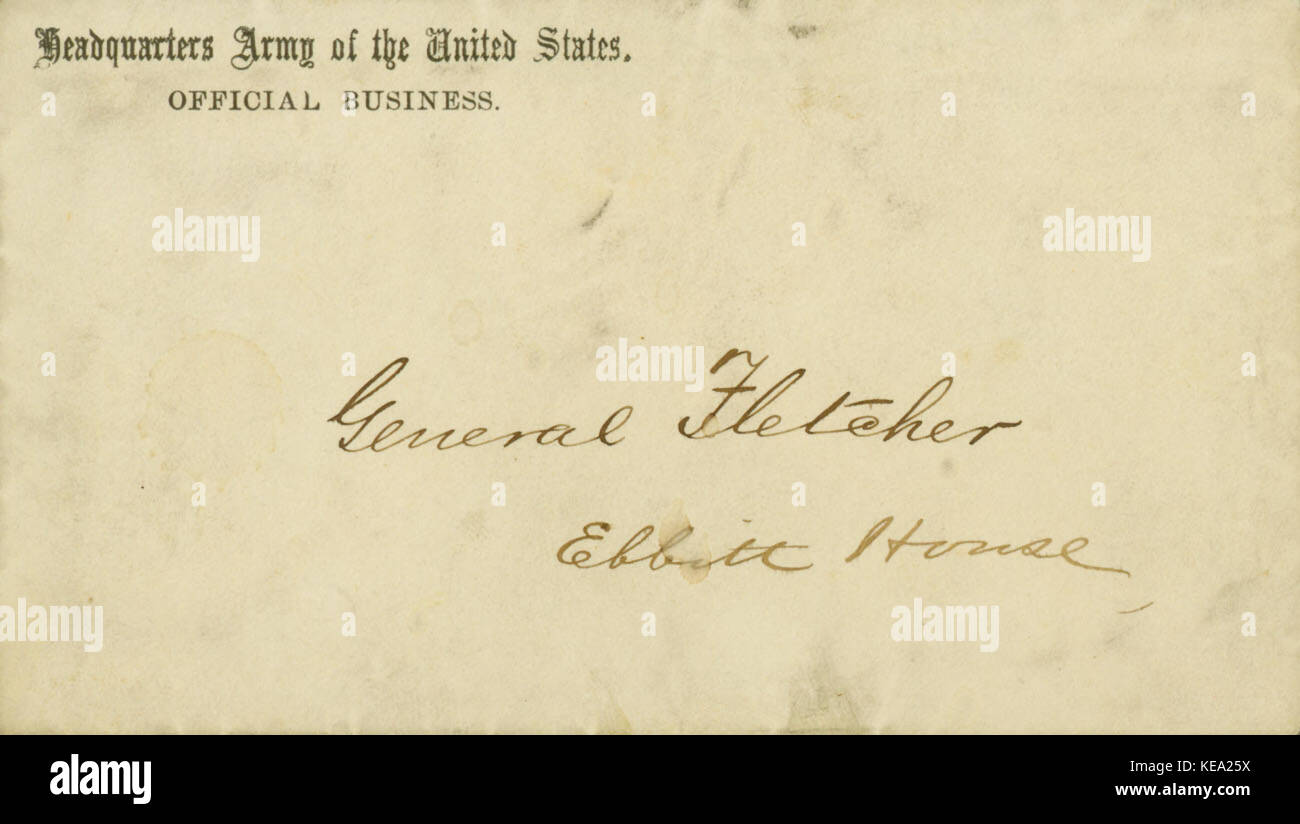 Headquarters Army of the United States.
OFFICIAL BUSINESS.
General Fletcher
Ebbitt House,
alamy
Image ID: KEA25X
www.alamy.com